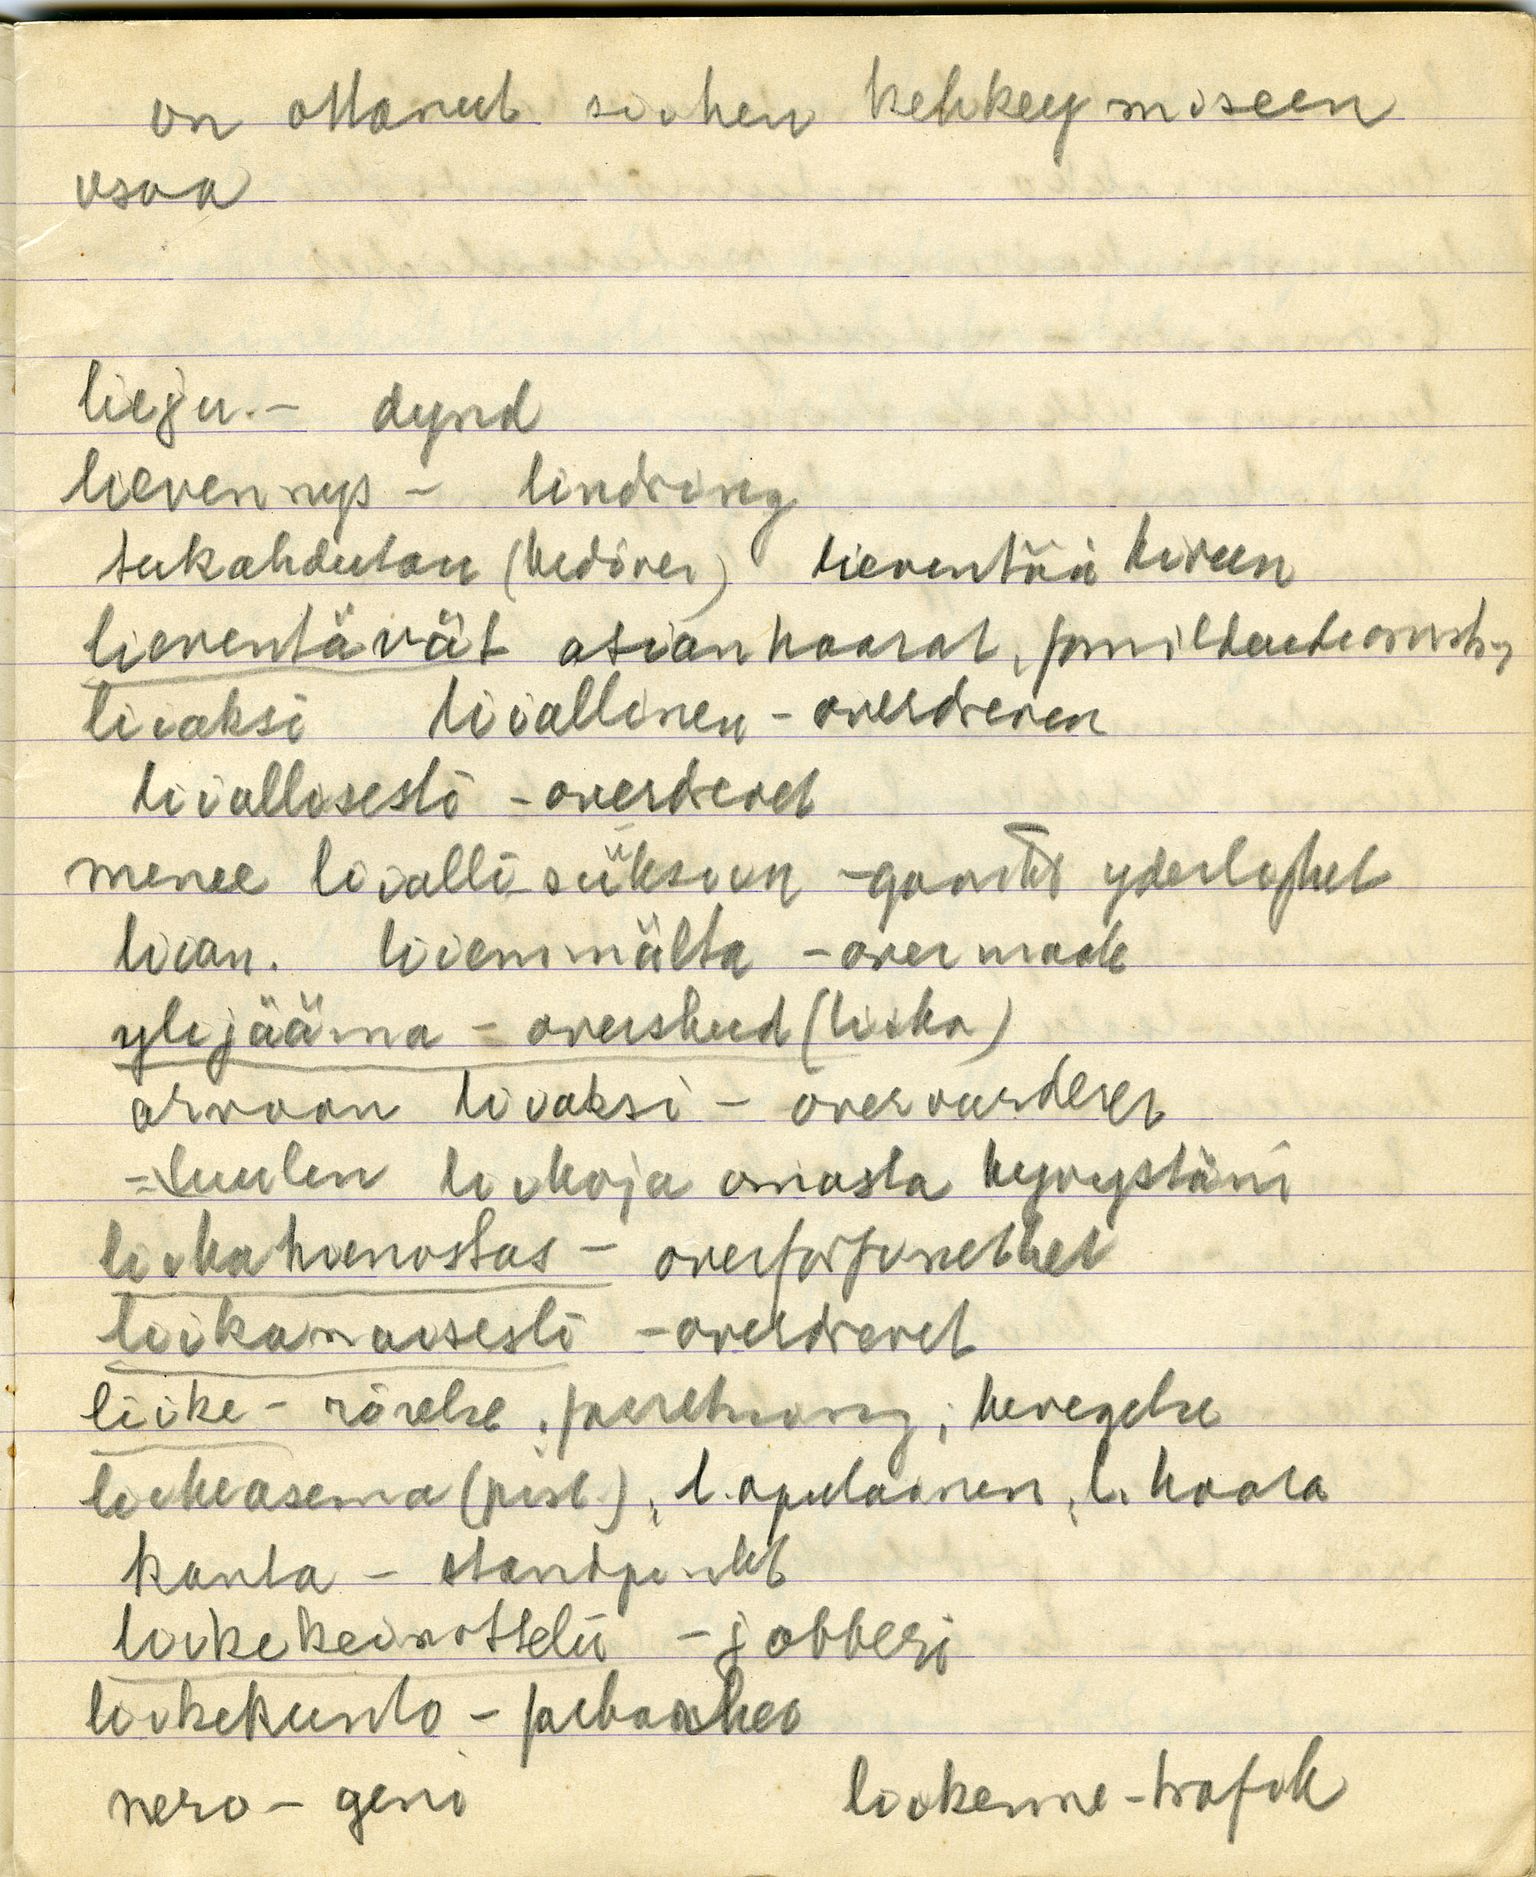 on ottanut siihen kehkeymiseen
osaa
lieju. – dynd
lievennys – lindring
tukahduttaa lieventää kireen
lieventävät asianhaarat, formildende omst.
liiaksi liiallinen – overdreven
liiallisesti – overdrevet
menee liiallisüksiin – gaar til yderlighet
liian. liiemmälta – overmade
ylijäämä – overskud (liika)
arvoan liiaksi – overvurderer
= luulen liikoja omasta kyvystäni
liikahienostus – overforfinethet
liikanaisesti – overdrevet
liike – rörelse, forretning, bevegelse
liikeasema (pist.), l. apulainen, l. haara
kanta – standpunkt
liikekeinottelii – jobberi
liikekunto –
nero – geni liikenne – trafik